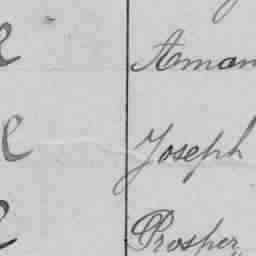 e Aman
e Joseph
e Prosper